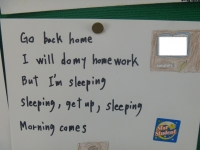 Go back home
I will do my home work
But I'm sleeping
sleeping, get up, sleeping
Morning comes
Star
Student